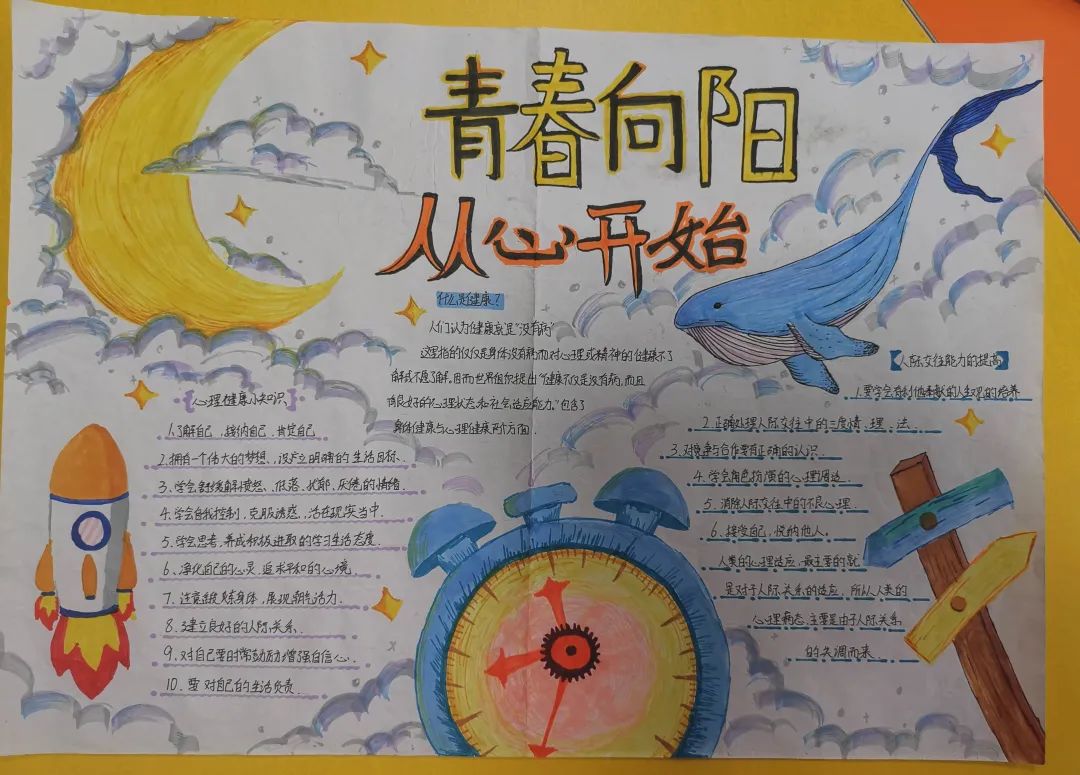 青春向阳
从心开始
什么是健康?
人们认为健康就是"没有病"
这里指的仅仅是身体没有病而对心理或精神的健康不了
解或不愿了解。因而世界组织提出"健康不仅是没有病,而且
有良好的心理状态和社会适应能力。"包含了
身体健康与心理健康两个方面.
【心理健康小知识】
1.了解自己、接纳自己、肯定自己
2.拥有一个伟大的梦想、设立明确的生活目标.
3.学会纾缓解愤怒、低落、忧郁、灰倦的情绪
4.学会自我控制,克服诱惑,活在现实当中.
5.学会思考,养成积极进取的学习生活态度.
6.净化自己的心灵.追求平和的心境
7.注意锻炼身体,展现朝气活力.
8.建立良好的人际关系.
9.对自己要时常鼓励力增强自信心.
10.要对自己的生活负责.
【人际交往能力的提高】
1.要学会有利他奉献的人生观的培养
2.正确处理人际交往中的三度情、理、法.
3.对竞争与合作要有正确的认识.
4.学会角色扮演的心理调适.
5.消除人际交往中的不良心理.
6.接受自己,悦纳他人.
人类的心理适应,最主要的就
是对于人际关系的适应,所以人类的
心理病态,主要是由于人际关系
的失调而来